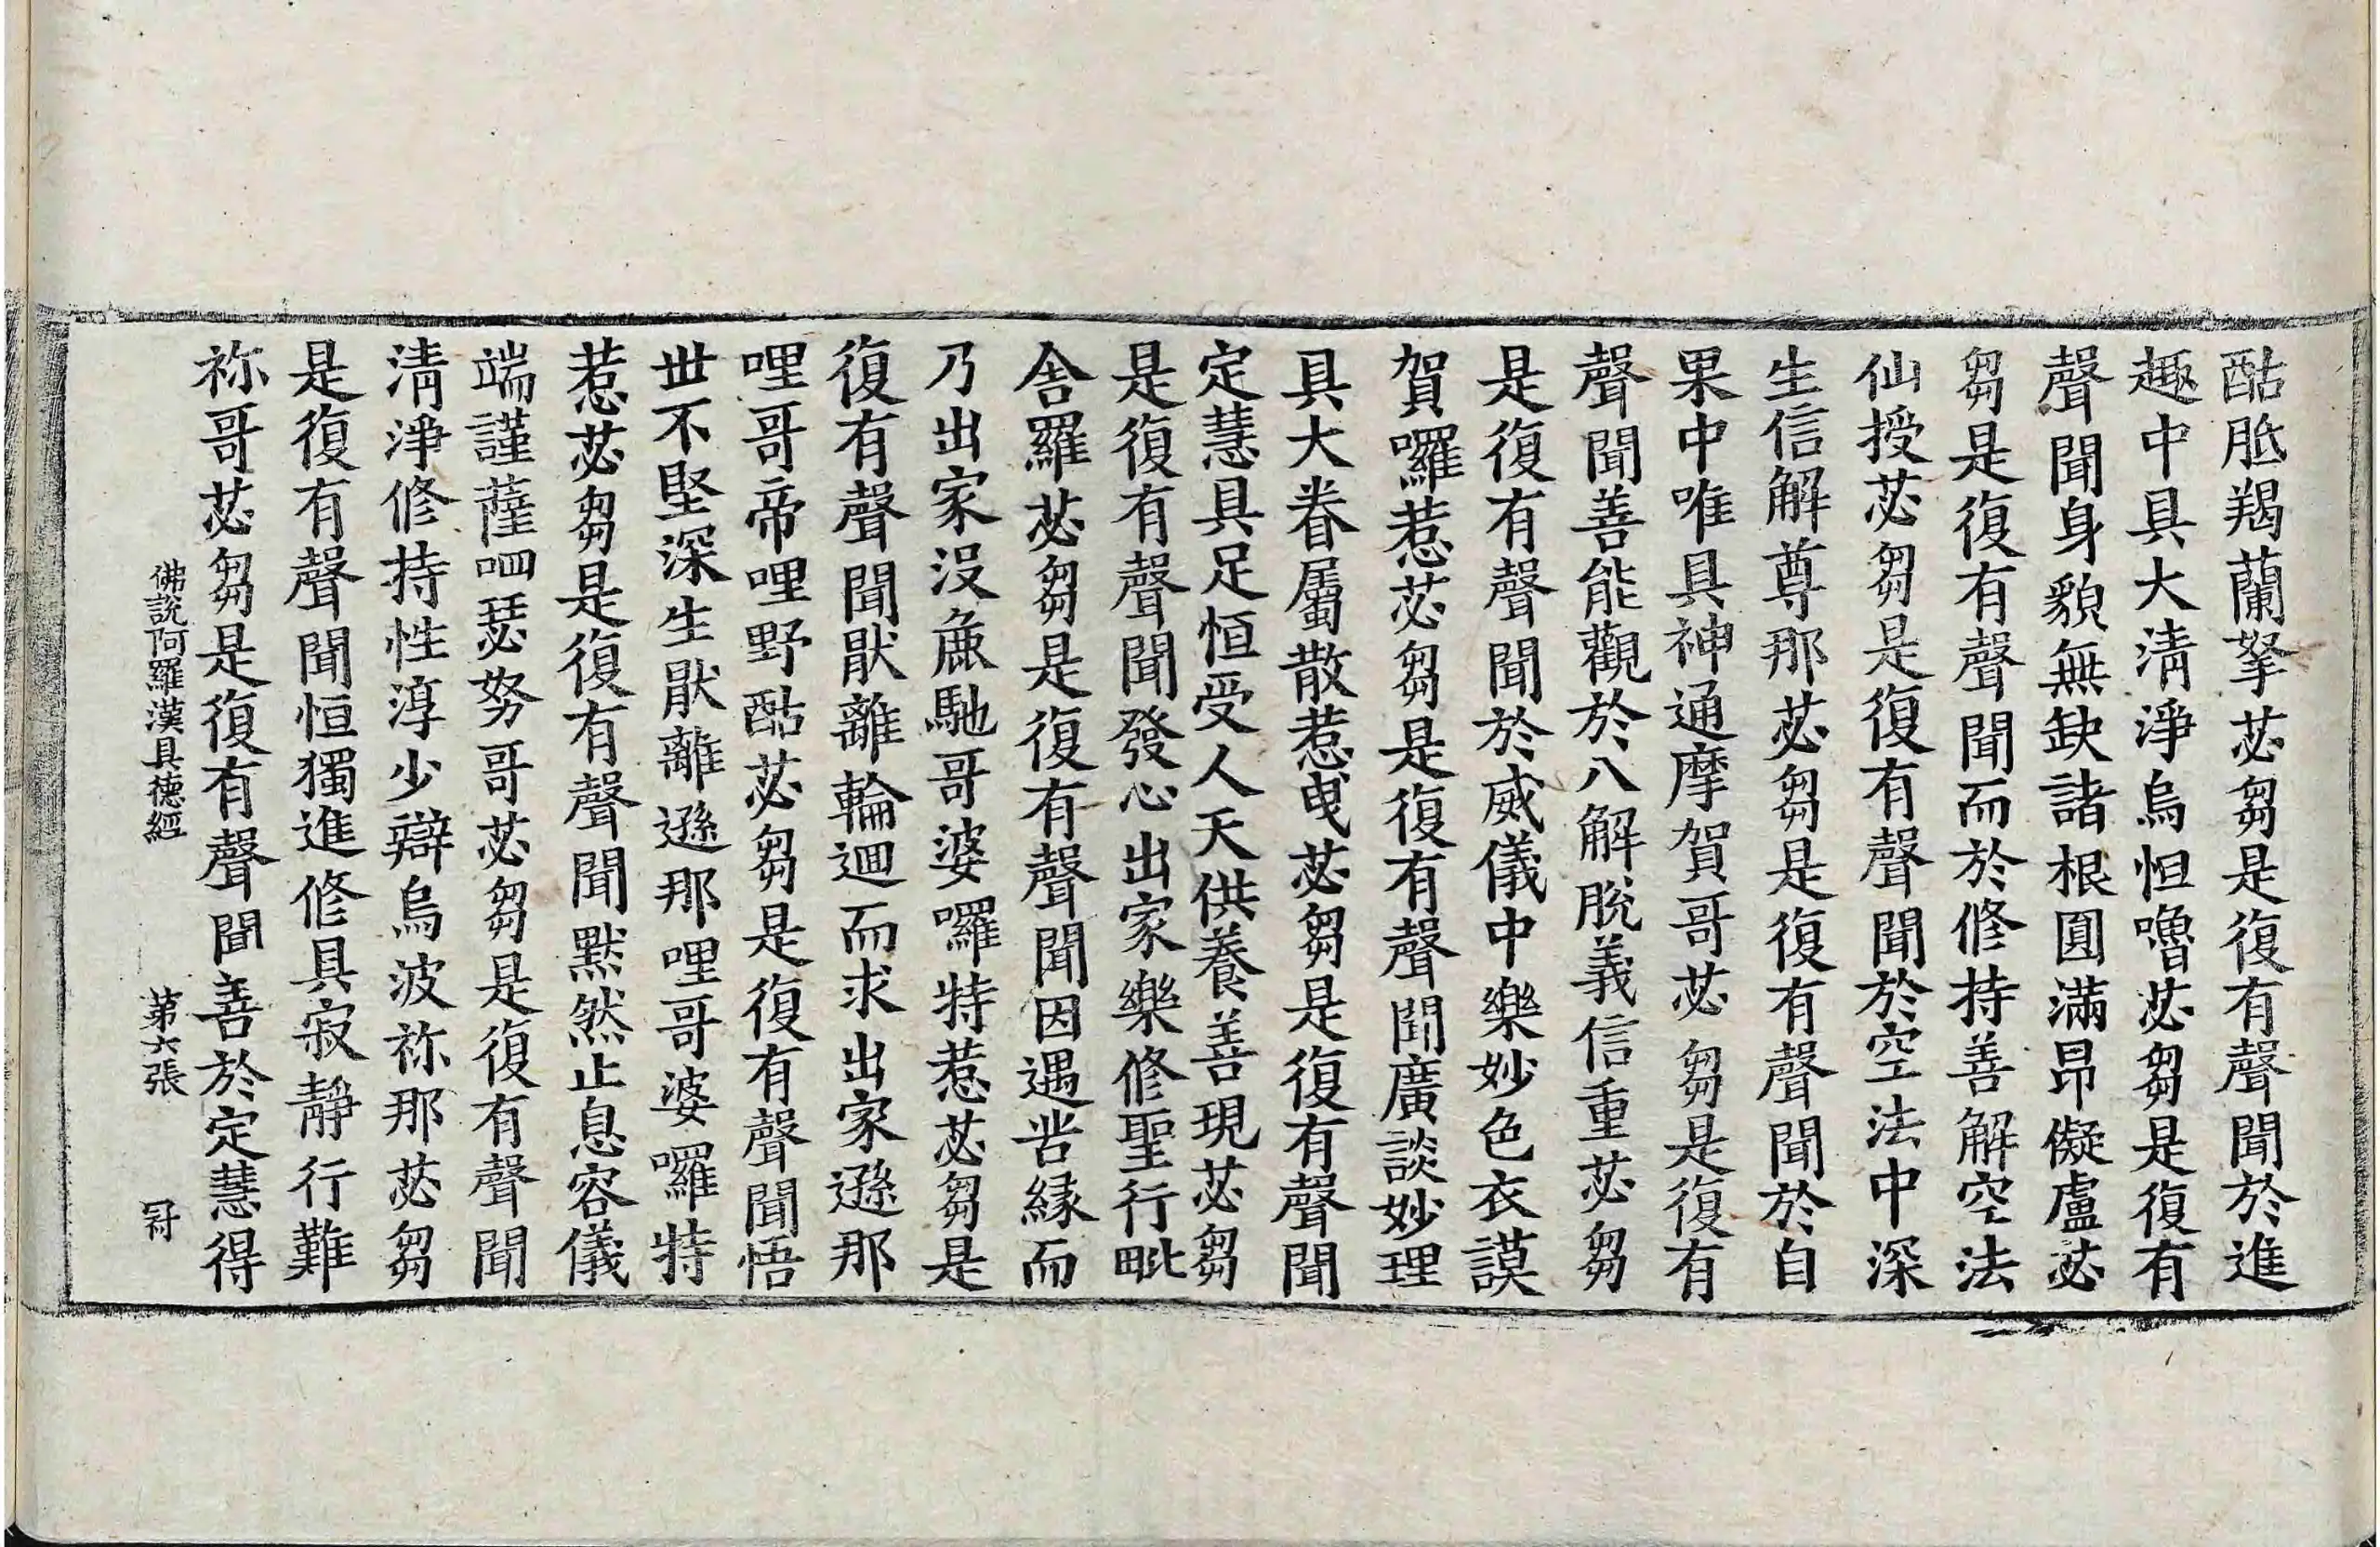 酤胝羯蘭拏苾芻是復有聲聞於進
趣中具大清淨烏怛嚕苾芻是復有
聲聞身貌無缺諸根圓滿昂儗盧苾
芻是復有聲聞而於修持善解空法
仙授苾芻是復有聲聞於空法中深
生信解尊那苾芻是復有聲聞於自
果中唯具神通摩賀哥苾芻是復有
聲聞善能觀於八解脫義信重苾芻
是復有聲聞於威儀中樂妙色衣謨
賀囉惹苾芻是復有聲聞廣談妙理
具大眷屬散惹曳苾芻是復有聲聞
定慧具足恒受人天供養善現苾芻
是復有聲聞發心出家樂修聖行毗
舍羅苾芻是復有聲聞因遇呰緣而
乃出家沒麁馳哥婆囉特惹苾芻是
復有聲聞厭離輪迴而求出家遜那
哩哥帝哩野酤苾芻是復有聲聞悟
世不堅深生厭離遜那哩哥婆囉特
惹苾芻是復有聲聞默然止息容儀
端謹薩呬瑟努哥苾芻是復有聲聞
清淨修持性淳少辯烏波祢那苾芻
是復有聲聞恒獨進修具寂靜行難
祢哥苾芻是復有聲聞善於定慧得
佛說阿羅漢具德經 第六張 冔